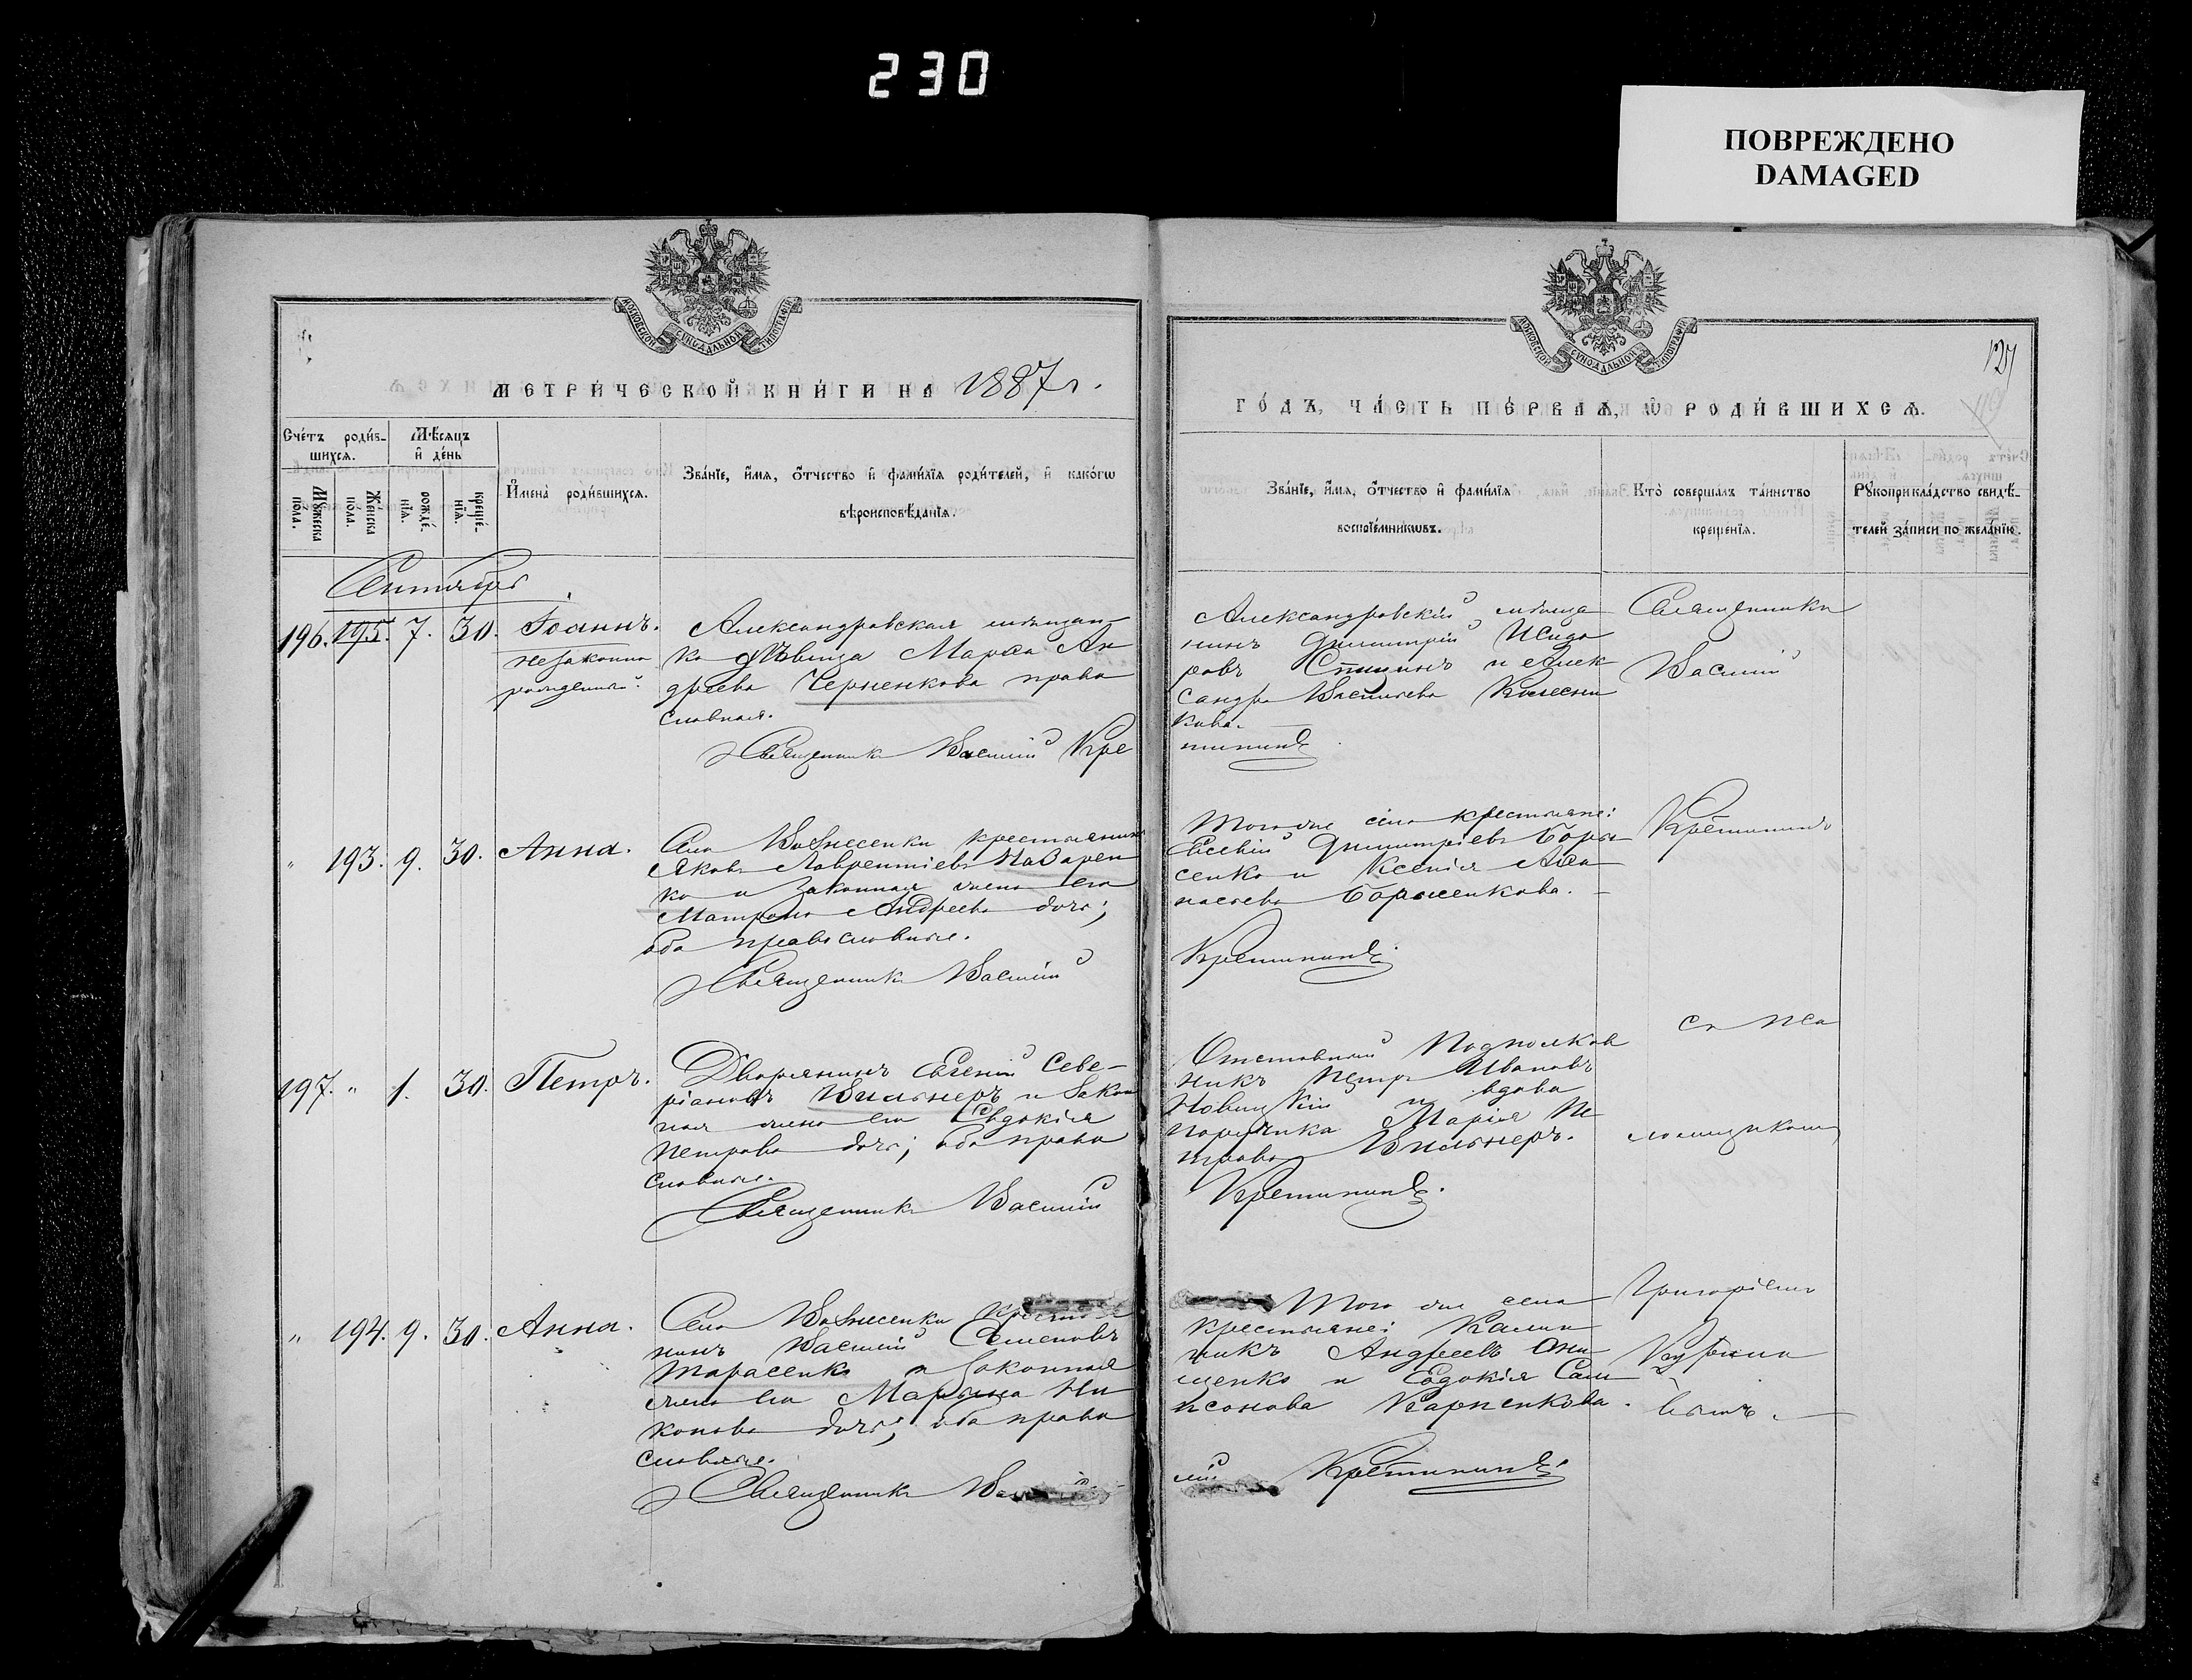 230
ПОВРЕЖДЕНО
DAMAGED
МОСКОВСКОЙ СУНОДАЛЬНОЙ ТИПОГРАФІИ
МЕТРИ́ЧЕСКОЙ КНИ́ГИ НА 1887 г.
Сче́тъ роди́в-
шихся.
Мѣ́сяцъ
и҆ де́нь
Мꙋ́жеска
по́ла.
Же́нска
по́ла.
рожде́-
нїѧ.
креще́-
нїѧ.
И҆мена̀ роди́вшихсѧ.
Зва́нїе, и҆́мѧ, ѻ҆́тчество и҆ фами́лїѧ роди́телей, и҆ како́гѡ
вѣроисповѣ́данїѧ.
Сентябрь
196. 195. 7. 30. Іоаннъ.
незаконно
рожденный.
Александровская мѣщан-
ка дѣвица Марѳа Ан
дреева Черненкова право
славная.
Священникъ Василій Кре
" 193. 9. 30. Анна.
Села Вознесенки крестьянинъ
Яковъ Лаврентіевъ Назарен
ко и законная жена его
Матрона Андреева дочь;
оба православные.
Священникъ Василій
197. " 1. 30. Петръ.
Дворянинъ Евгеній Севе-
ріановъ Вильнеръ и закон
ная жена его Евдокія
Петрова дочь; оба право
славные.
Священникъ Василій
" 194. 9. 30. Анна.
Села Вознесенки
нинъ Василій Семеновъ
Тарасенко и законная
жена его Марѳа Ни
конова дочь; оба право
славные.
Священникъ
МОСКОВСКОЙ СУНОДАЛЬНОЙ ТИПОГРАФІИ
127
119
ГО́ДЪ, ЧА́СТЬ ПЕ́РВАѦ, Ѽ РОДИ́ВШИХСѦ.
Зва́нїе, и҆́мѧ, ѻ҆́тчество и҆ фами́лїѧ
воспрїе́мникѡвъ.
Кто̀ соверша́лъ та́инство
креще́нїѧ.
Рꙋкоприкла́дство свидѣ́-
телей за́писи по жела́нїю.
Александровскій мѣща
нинъ Димитрій Исидо
ровъ Спицинъ и Алек
сандра Васильева Колесни
кова.
тининъ
Того же села крестьяне:
Евсевій Димитріевъ Бори
сенко и Ксенія Аѳа
насьева Борисенкова.
Кретининъ.
Отставной Подполков
никъ Петръ Ивановъ
Новицкій и вдова
поручика Марія Пе
трова Вильнеръ.
Кретининъ.
Того же села
крестьяне: Калин
никъ Андреевъ Они
щенко и Евдокія Сам
псонова Карпенкова.
лій Кретининъ.
Священникъ
Василій
Кретининъ
съ пса
ломщикомъ
Григоріемъ
вымъ.